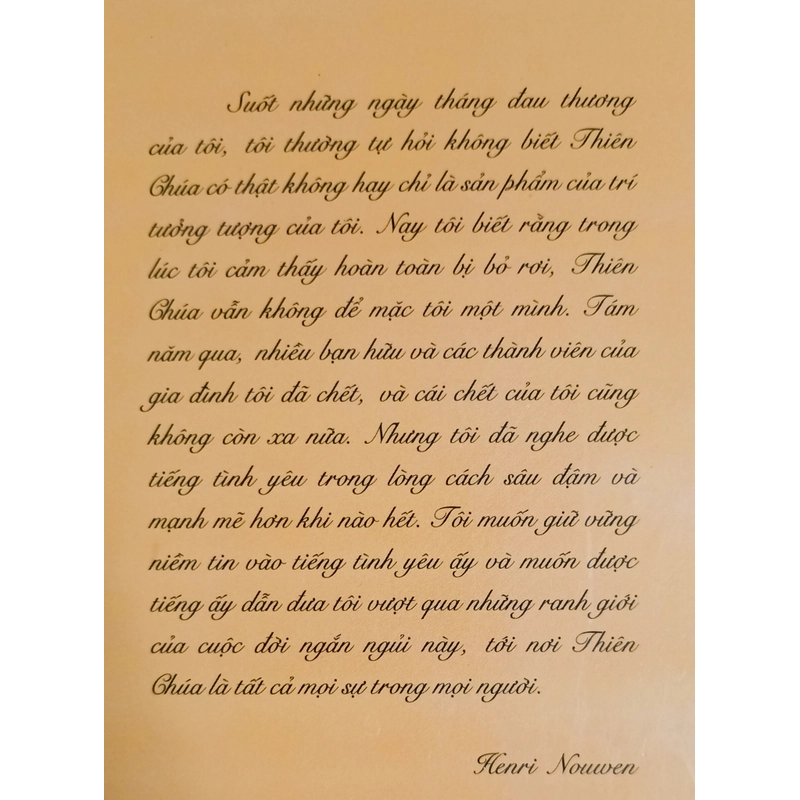 Suốt những ngày tháng đau thương
của tôi, tôi thường tự hỏi không biết Thiên
Chúa có thật không hay chỉ là sản phẩm của trí
tưởng tượng của tôi. Nay tôi biết rằng trong
lúc tôi cảm thấy hoàn toàn bị bỏ rơi, Thiên
Chúa vẫn không để mặc tôi một mình. Tám
năm qua, nhiều bạn hữu và các thành viên của
gia đình tôi đã chết, và cái chết của tôi cũng
không còn xa nữa. Nhưng tôi đã nghe được
tiếng tình yêu trong lòng cách sâu đậm và
mạnh mẽ hơn khi nào hết. Tôi muốn giữ vững
niềm tin vào tiếng tình yêu ấy và muốn được
tiếng ấy dẫn đưa tôi vượt qua những ranh giới
của cuộc đời ngắn ngủi này, tới nơi Thiên
Chúa là tất cả mọi sự trong mọi người.
Henri Nouwen